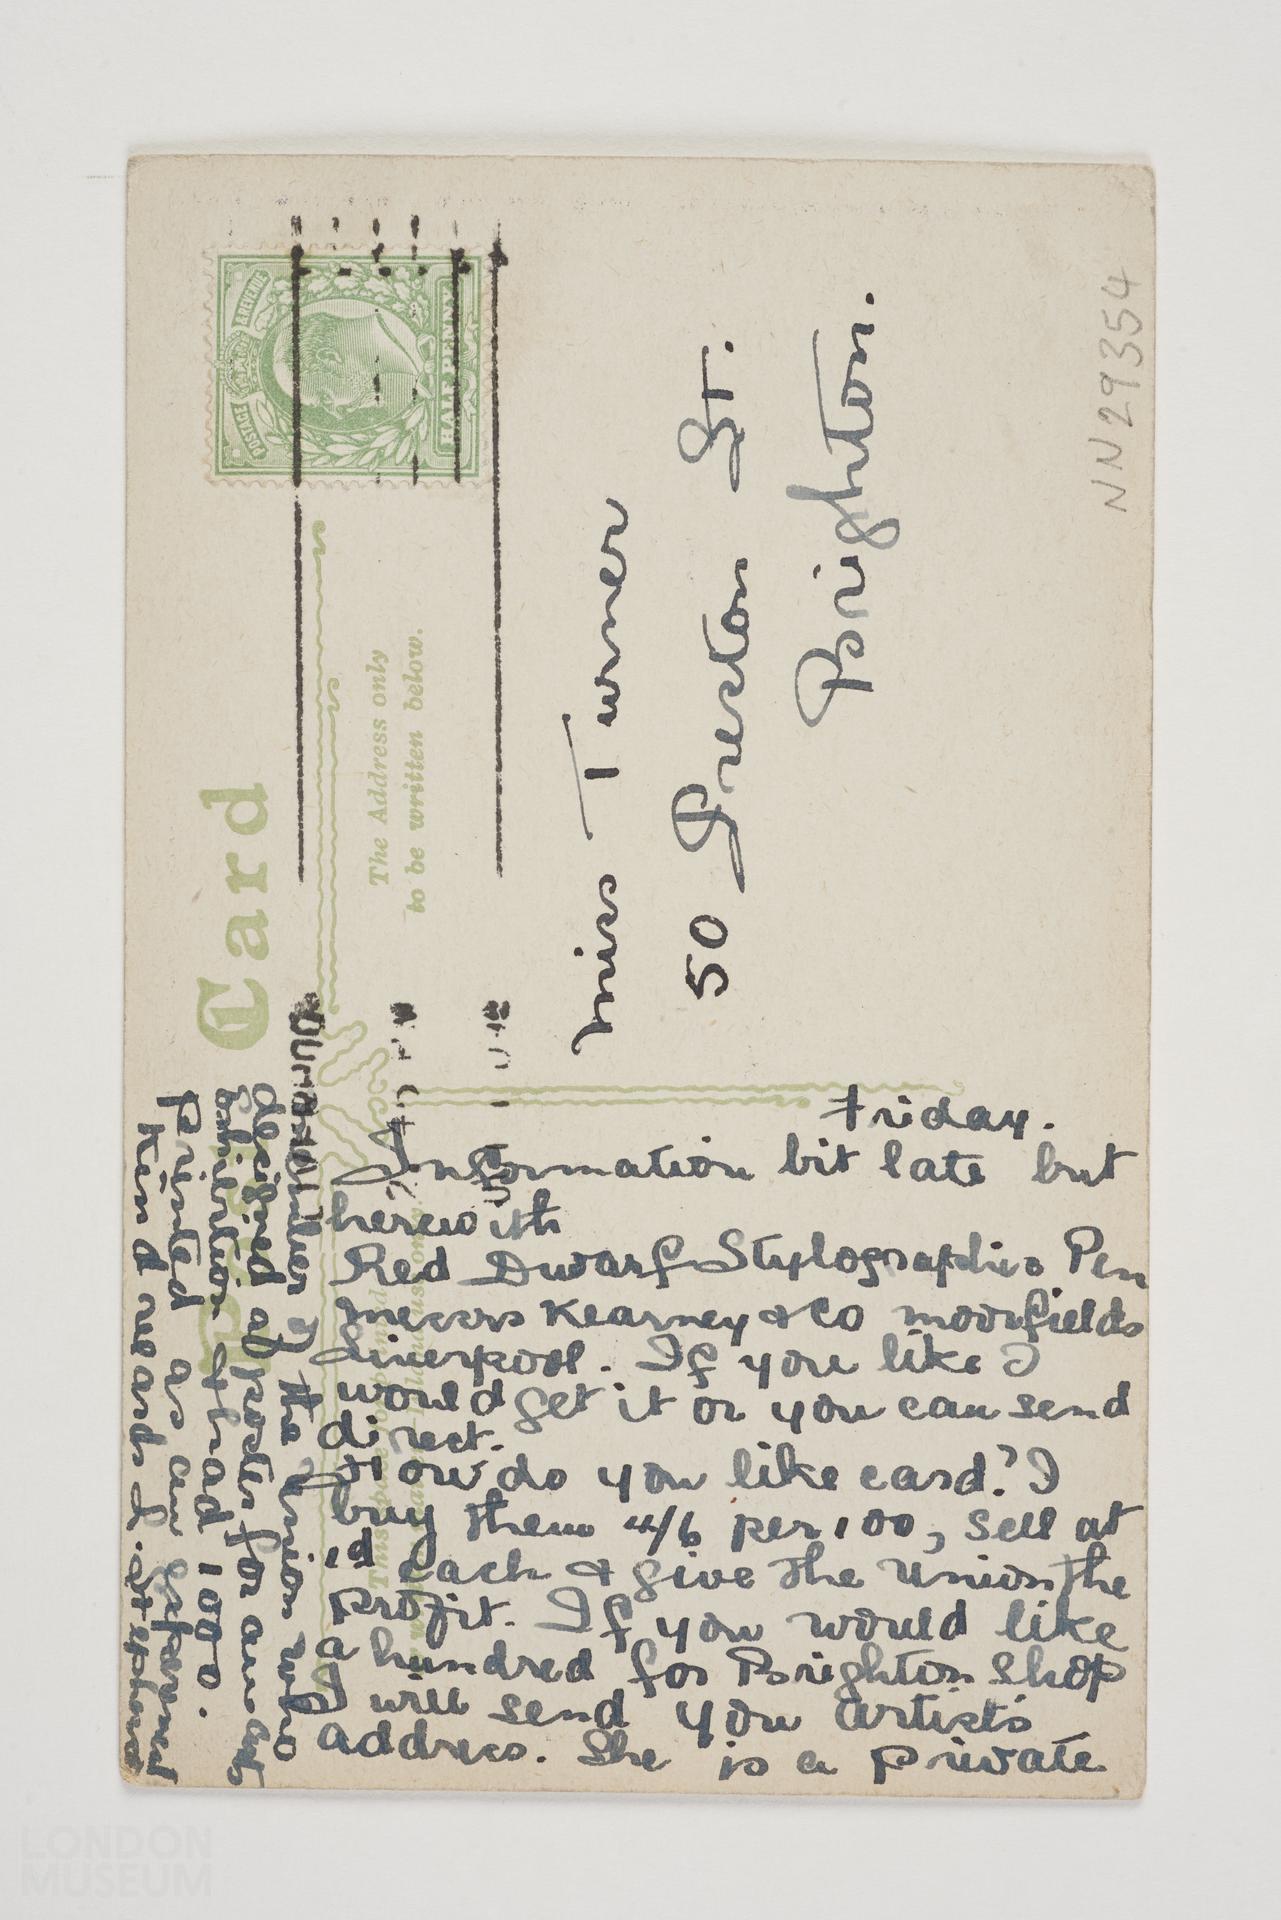 Post Card
The Address only
to be written below.
POSTAGE & REVENUE
HALF PENNY
Miss Turner
50 Preston St.
Brighton.
NN29354
Friday.
Information bit late but
herewith
Red Dwarf Stylographic Pen
Messrs Kearney & Co Moorfields
Liverpool. If you like I
would get it or you can send
direct.
How do you like card? I
buy them 4/6 per 100, sell at
1d each & give the Union the
profit. If you would like
a hundred for Brighton Shop
I will send you artists
address. She is a private
member of the Union who
designed a poster for an art
exhibition & had 1000
printed as an experiment
Kind regards
LONDON
MUSEUM